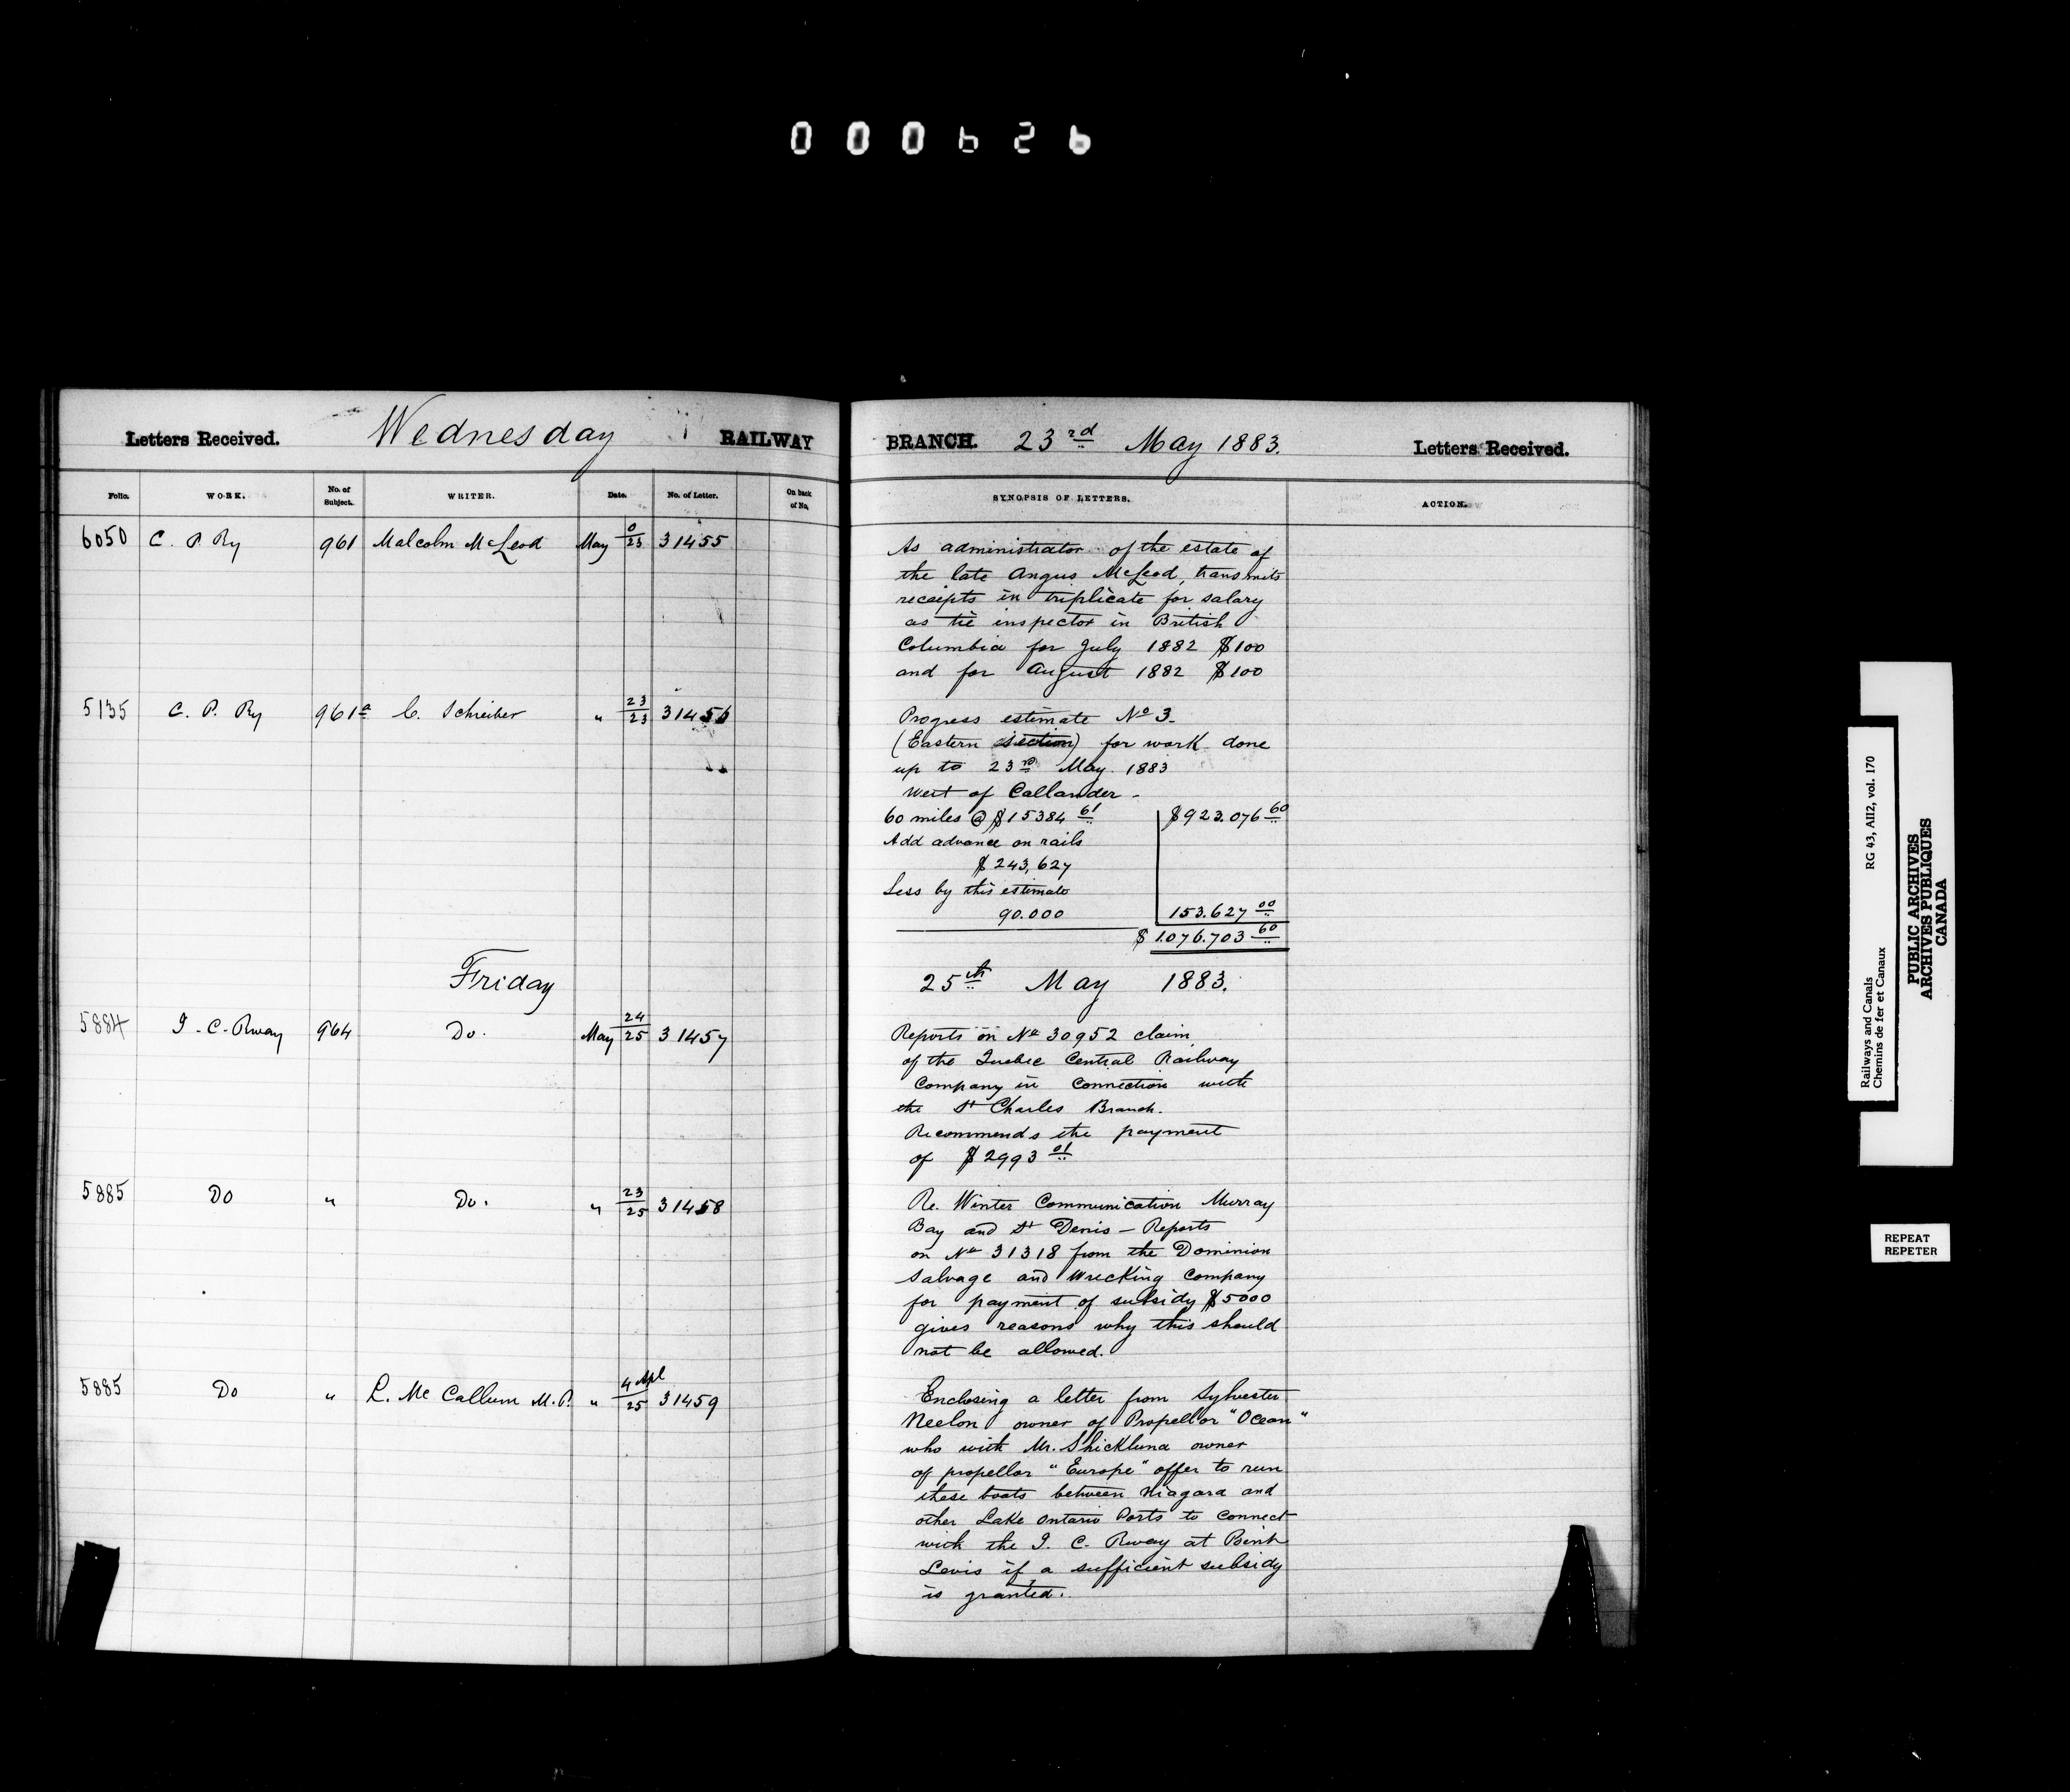 000626
Letters Received. Wednesday RAILWAY
Folio. WORK. No. of Subject. WRITER. Date. No. of Letter. On back of No.
6050 C. P. Ry 961 Malcolm McLeod May 0/23 31455
5135 C. P. Ry 961a C. Schreiber " 23/23 31456
Friday
5884 I. C. Rway 964 Do. May 24/25 31457
5885 Do " Do. " 23/25 31458
5885 Do " L. McCallum M.P. " 4 Apl/25 31459
BRANCH. 23rd May 1883. Letters Received.
SYNOPSIS OF LETTERS. ACTION.
As administrator of the estate of
the late Angus McLeod, transmits
receipts in triplicate for salary
as tie inspector in British
Columbia for July 1882 $100
and for August 1882 $100
Progress estimate No 3.
(Eastern section) for work done
up to 23rd May 1883
West of Callander -
60 miles @ $15384 61 $923.076 60
Add advance on rails
$243,627
Less by this estimate
90.000 153.627 00
$1.076.703 60
25th May 1883.
Reports on No 30952 claim
of the Quebec Central Railway
Company in connection with
the St Charles Branch.
Recommends the payment
of $2993 01
Re. Winter Communication Murray
Bay and St Denis - Reports
on No 31318 from the Dominion
Salvage and Wrecking Company
for payment of subsidy $5000
gives reasons why this should
not be allowed.
Enclosing a letter from Sylvester
Neelon owner of Propellor "Ocean"
who with Mr. Shickluna owner
of propellor "Europe" offer to run
these boats between Niagara and
other Lake Ontario Ports to connect
with the I. C. Rway at Point
Levis if a sufficient subsidy
is granted.
Railways and Canals RG 43, AII2, vol. 170
Chemins de fer et Canaux
PUBLIC ARCHIVES
ARCHIVES PUBLIQUES
CANADA
REPEAT
REPETER